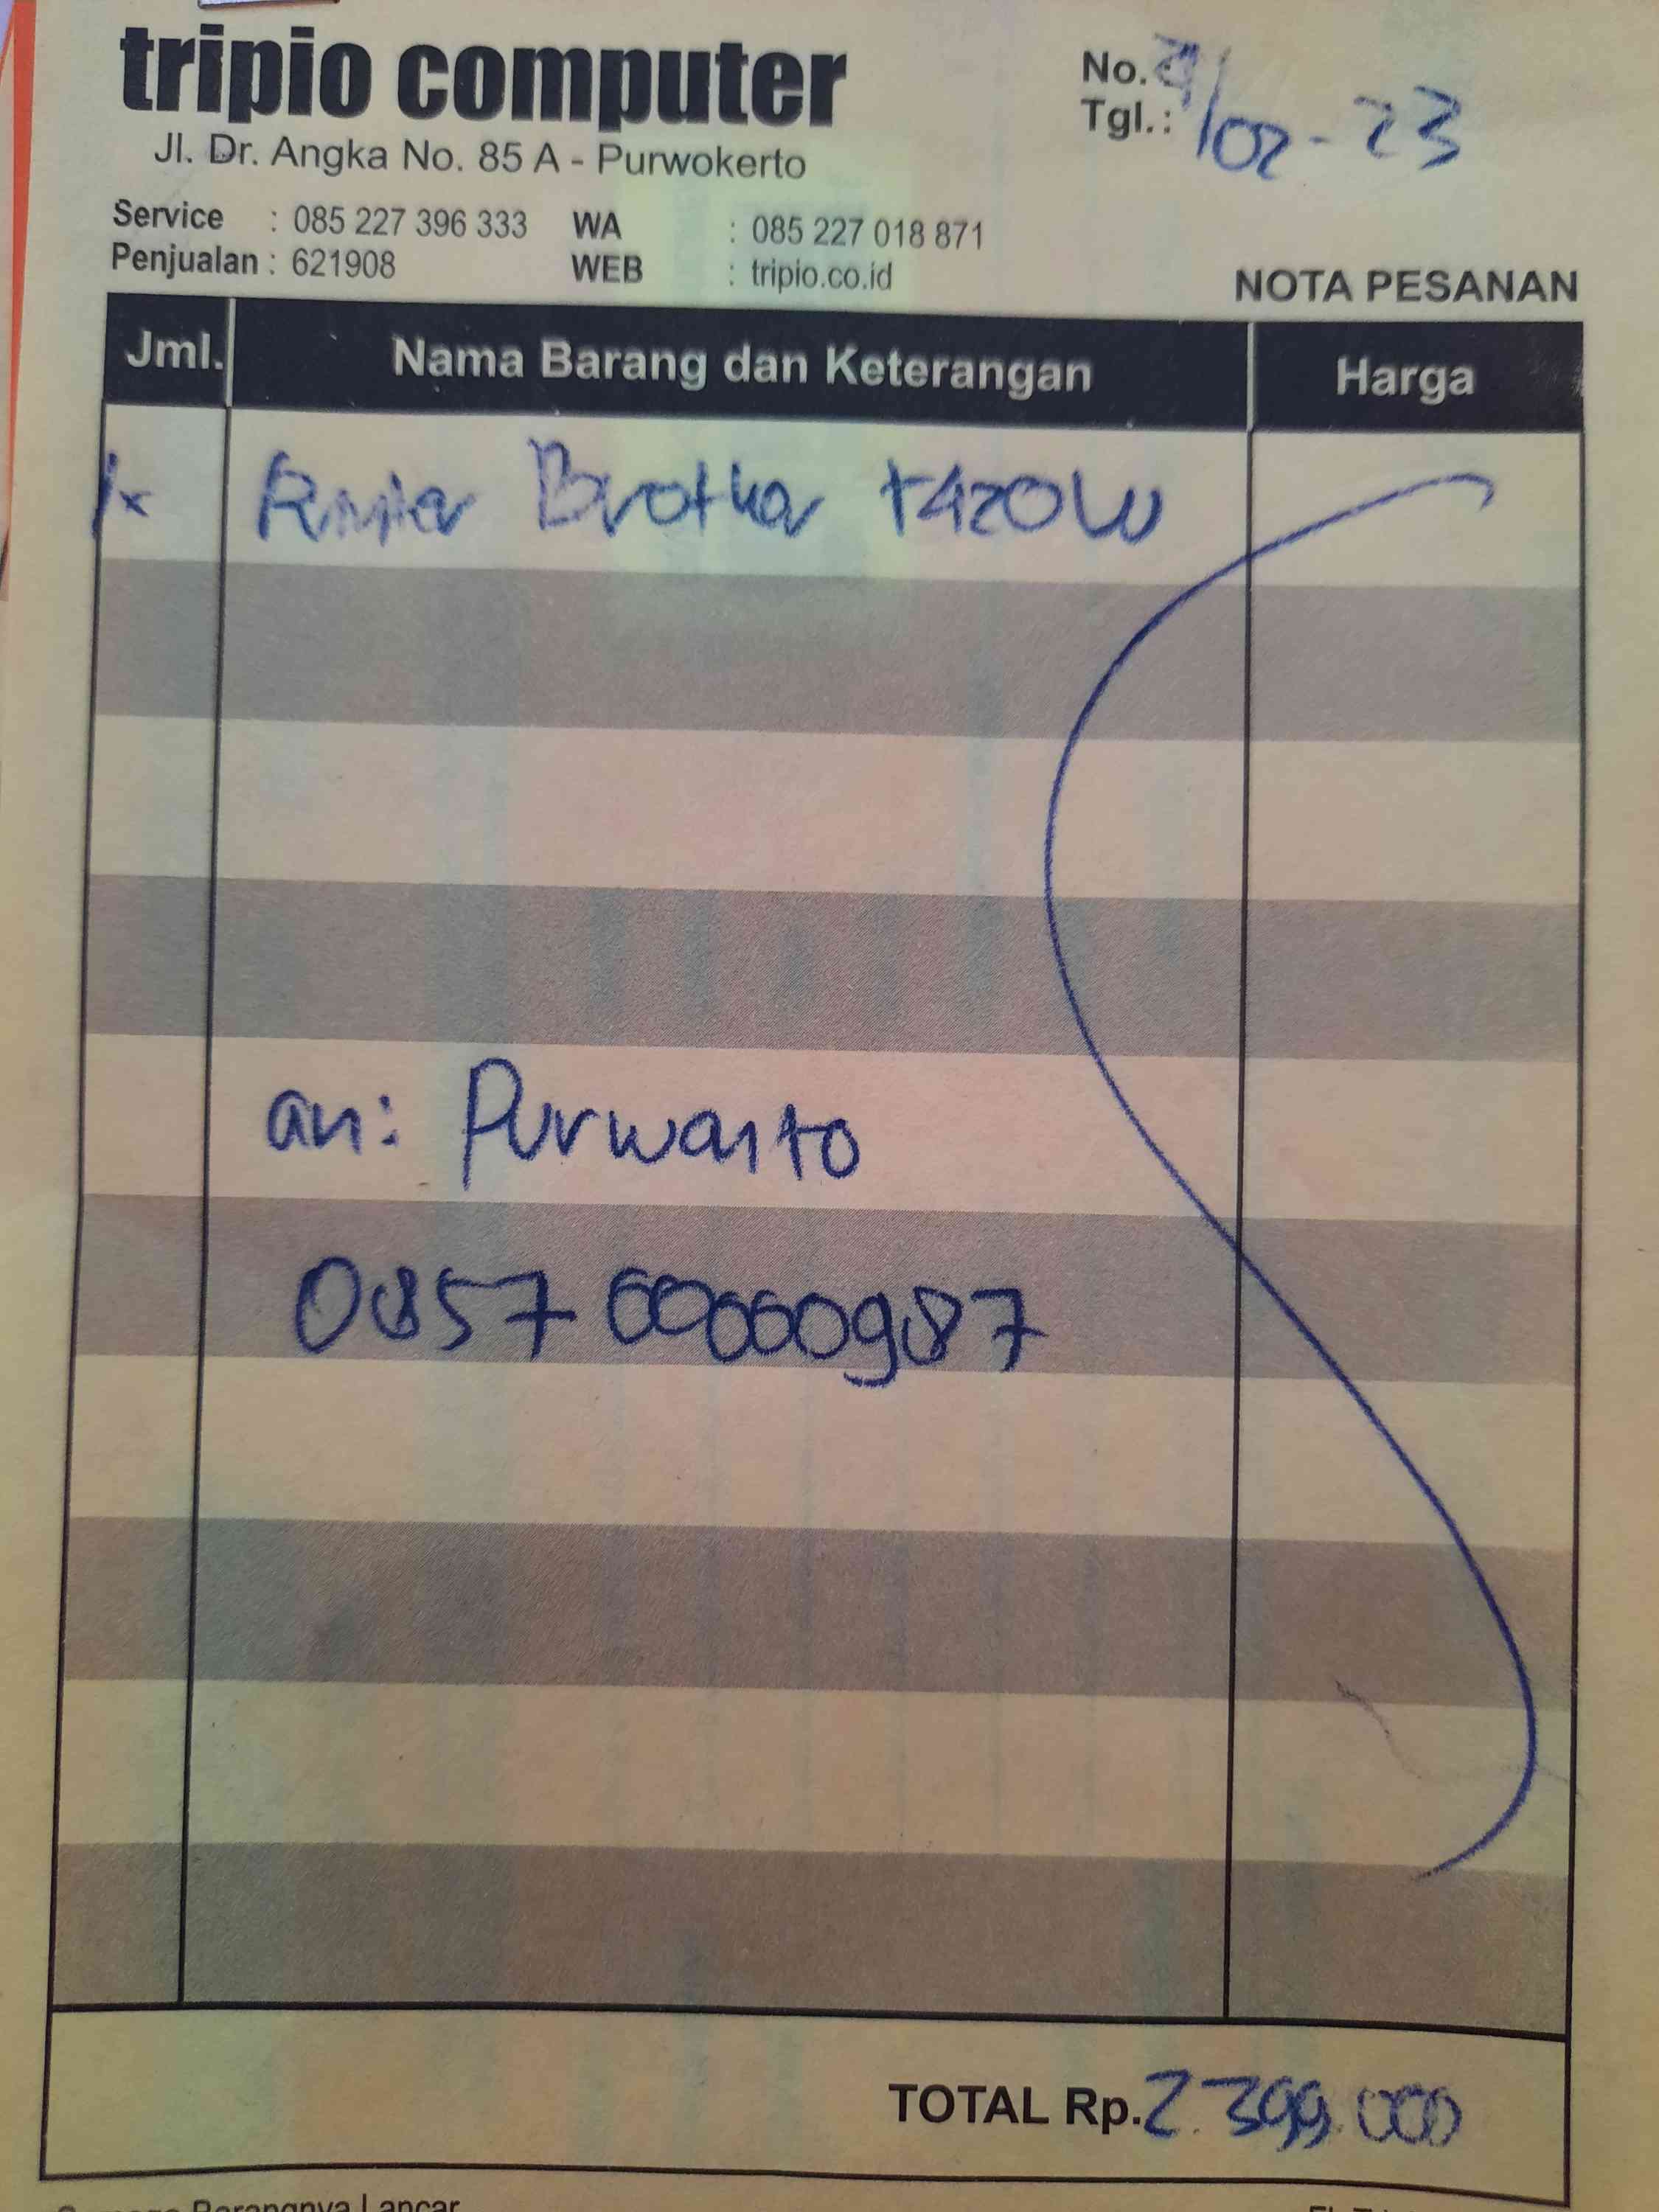 tripio computer
Jl. Dr. Angka No. 85 A - Purwokerto
No. :
Tgl.: /02-23
Service : 085 227 396 333 WA : 085 227 018 871
Penjualan : 621908 WEB : tripio.co.id
NOTA PESANAN
Jml. Nama Barang dan Keterangan Harga
1x Brother T420W
an: Purwanto
0857 60660987
TOTAL Rp. 2.399.000
Barangnya Lancar